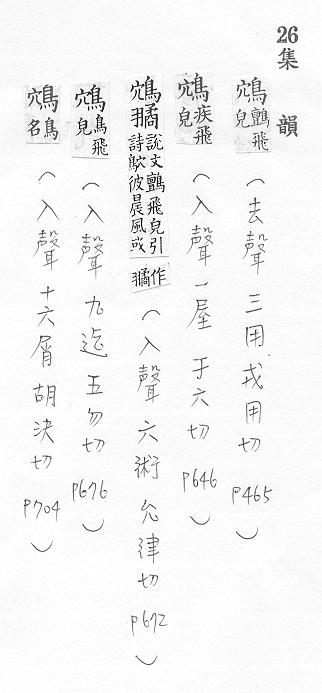 26 集韻
鴥 鸇飛皃 (去聲 三用 戎用切 p465)
鴥 疾飛皃 (入聲 一屋 于六切 p646)
鴥 說文鸇飛皃引詩鴥彼晨風或作 (入聲 六術 允律切 p672)
鴥 鳥飛皃 (入聲 九迄 五勿切 p676)
鴥 鳥名 (入聲 十六屑 胡決切 p704)